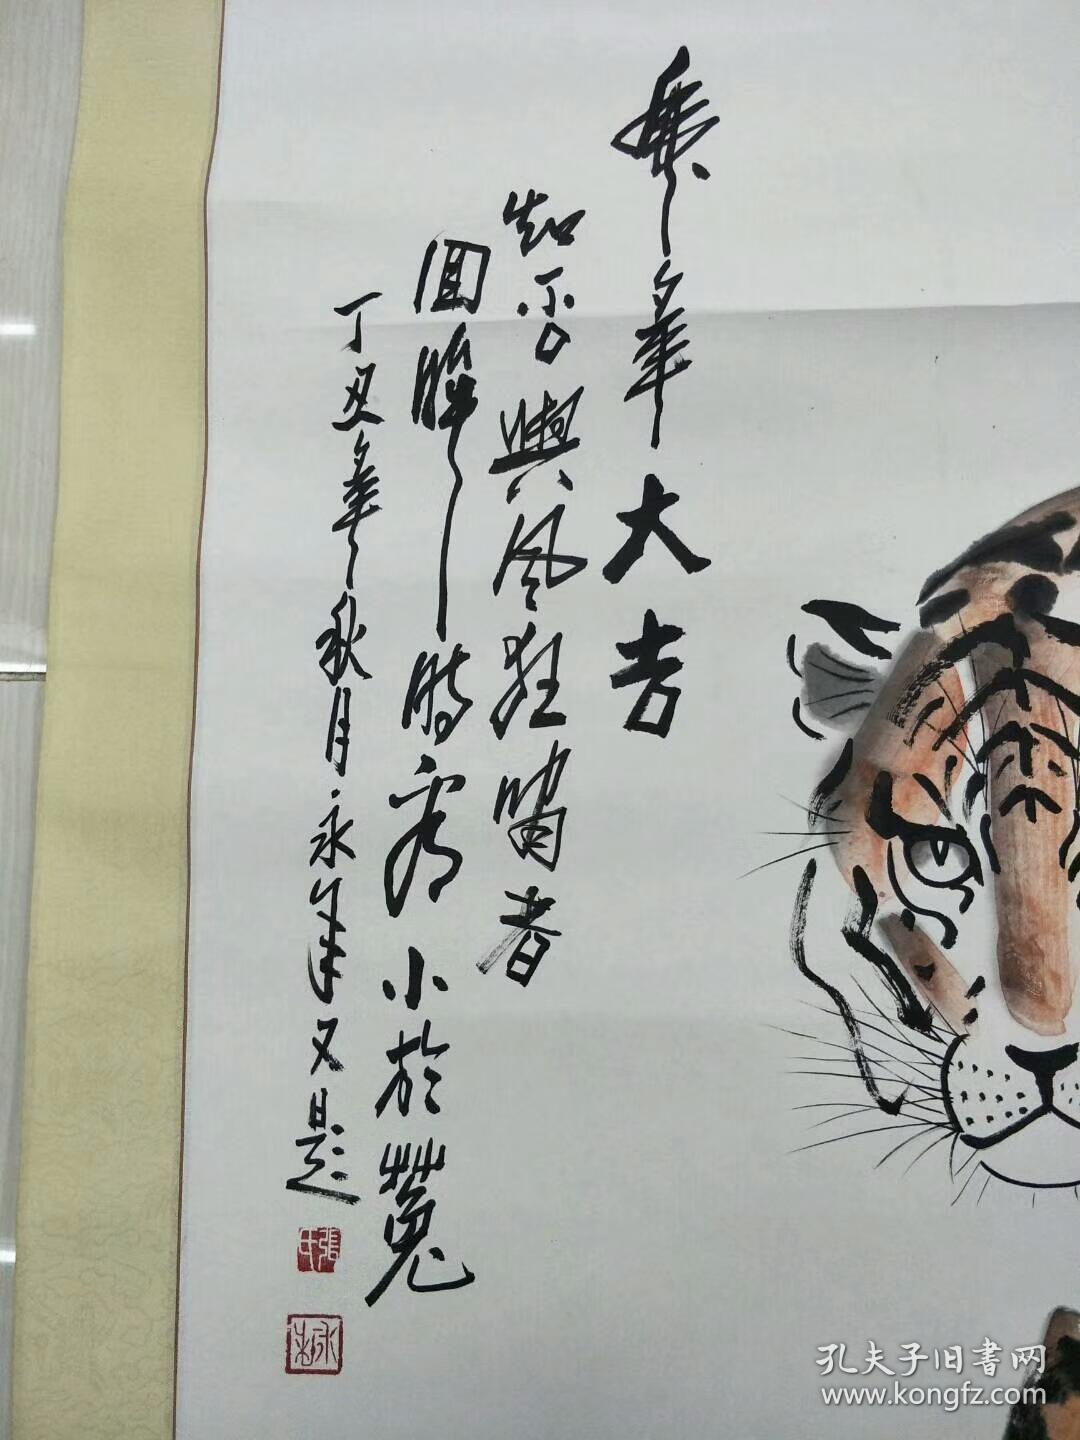 虎年大吉
知否興風狂嘯者
回眸時看小於菟
丁丑年秋月永年又題
張氏
永年
孔夫子旧書网
www.kongfz.com